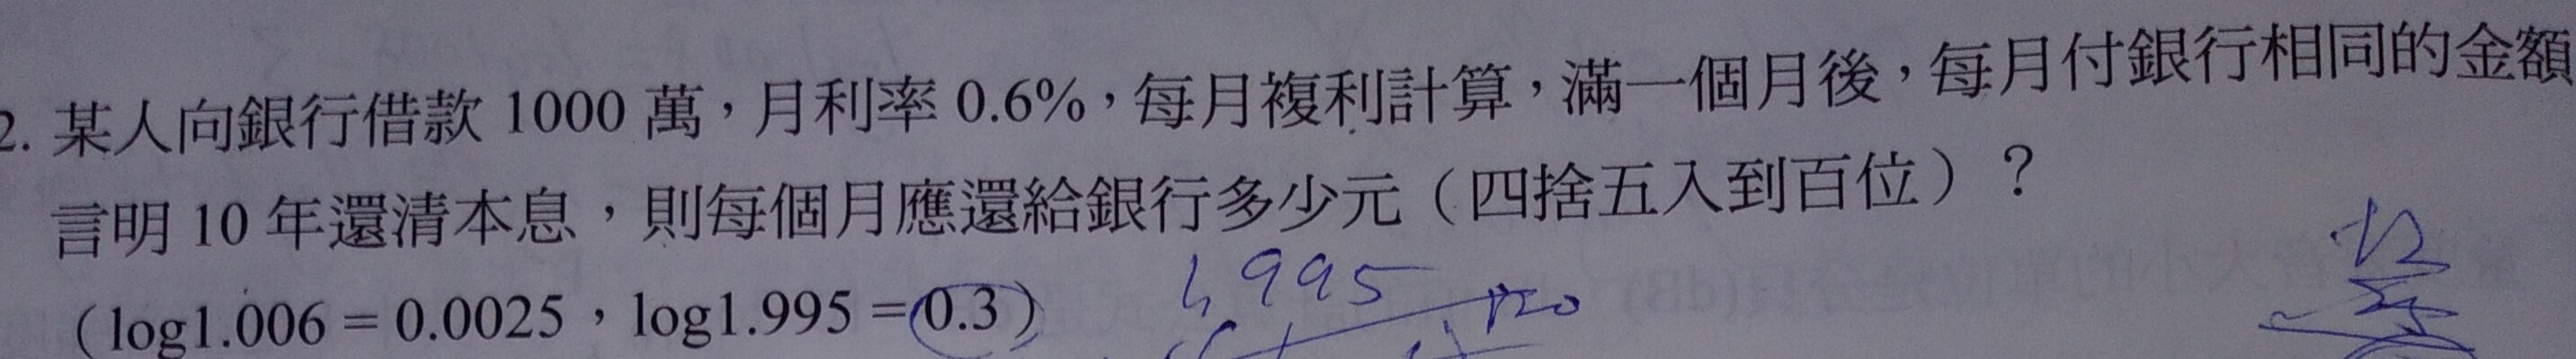 2. 某人向銀行借款 1000 萬，月利率 0.6%，每月複利計算，滿一個月後，每月付銀行相同的金額
言明 10 年還清本息，則每個月應還給銀行多少元（四捨五入到百位）？
（log1.006 = 0.0025，log1.995 = 0.3）
1,995